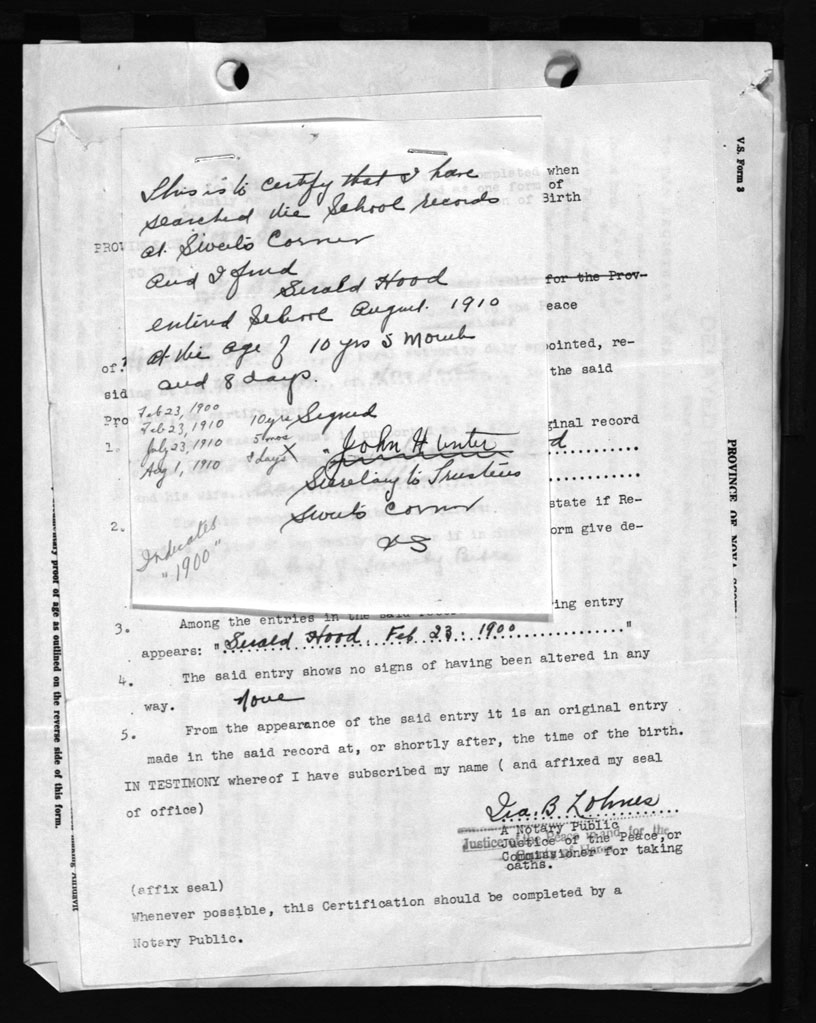 This is to certify that I have
searched the School records
at Sweets Corner
and I find
Gerald Hood
entered School August. 1910
at the age of 10 yrs 5 Month
and 8 days.
Signed
" John Hunter
Secretary to Trustees
Sweets Corner
NS
Feb 23, 1900
Feb 23, 1910 10 yrs
July 23, 1910 5 mos
Aug 1, 1910 8 days X
Indicates
"1900"
when
of
Birth
PROV
for the Prov-
Peace
of
ointed, re-
sid
the said
Pro
1.
ginal record
d
and his wife
2.
state if Re-
orm give de-
3. Among the entries in the said ing entry
appears: "Gerald Hood, Feb 23. 1900"
4. The said entry shows no signs of having been altered in any
way. None
5. From the appearance of the said entry it is an original entry
made in the said record at, or shortly after, the time of the birth.
IN TESTIMONY whereof I have subscribed my name ( and affixed my seal
of office)
Ira. B. Lohnes
A Notary Public
Justice of the Peace, or
Commissioner for taking
oaths.
Justice of the Peace in and for the
County of Hants
(affix seal)
Whenever possible, this Certification should be completed by a
Notary Public.
V.S. Form 3
PROVINCE OF NOVA
proof of age as outlined on the reverse side of this form.